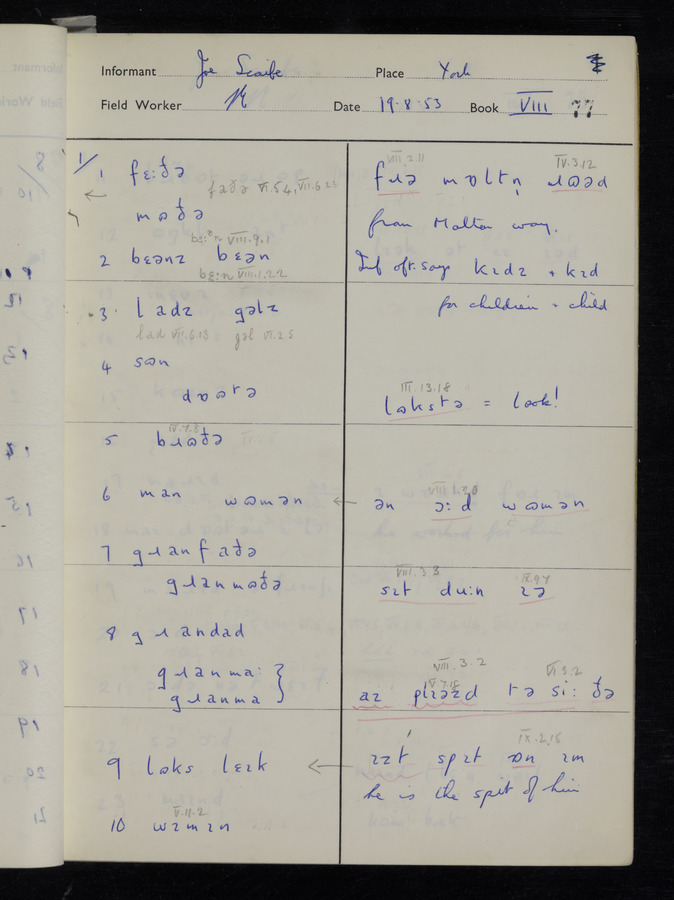 Informant Joe Scaife Place York
Field Worker Date 19.8.53 Book VIII
1/
1 fɛ:ðə
faðə VI.5.4, VII.6.23
mʊðə
VIII.9.1
2 bɛənz bɛən
bɛ:n VIII.1.22
3 ladz gəlz
lad VI.6.13 gəl VI.2.5
4 sʊn
dɒʊtə
5 bɹʊðə
6 man wʊmən
7 gɹanfaðə
gɹanmʊðə
8 gɹandad
gɹanma: }
gɹanma
9 lʊks lɛɪk
V.11.2
10 wɪmɪn
VIII.2.11 IV.3.12
fɹə mɒltn̩ ɹʊəd
from Malton way.
Inf oft. says kɪdz + kɪd
for children + child
III.13.18
lʊkstə = look!
VIII.1.20
ən ɔ:d wʊmən
VIII.3.3 IX.9.4
sɪt du:n ɪə
VIII.3.2 VI.3.2
az plɪəzd tə si: ðə
IX.2.15
ɪzt spɪt ɒn ɪm
he is the spit of him